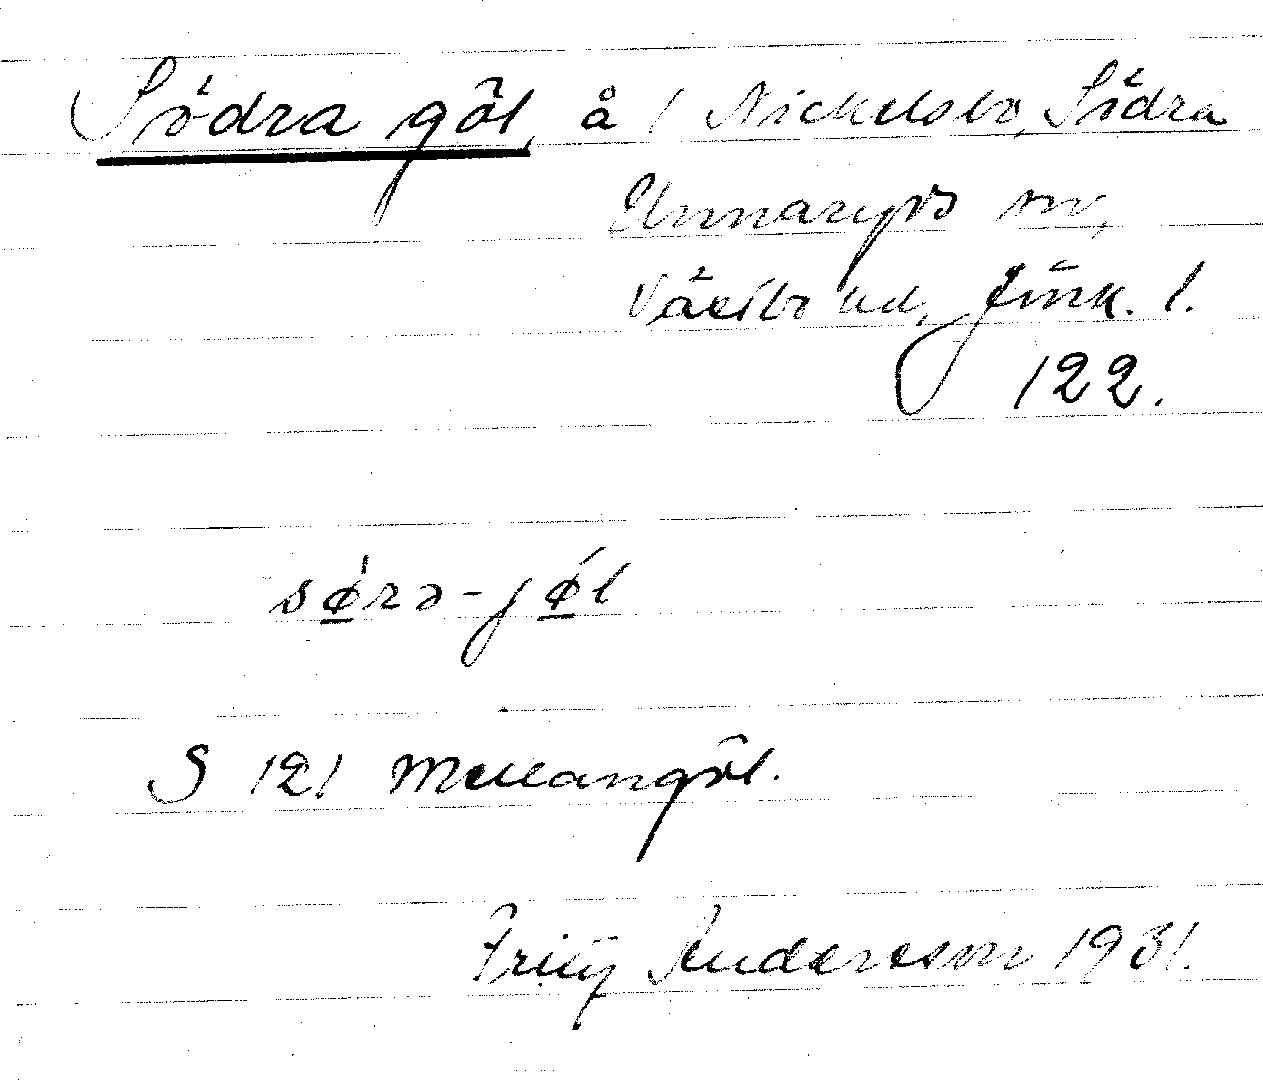 Södra göl, å 1 Nickelsbo, Södra
Unnaryds sn,
Västbo hd, Jönk. l.
122.
sǿ̱rə-jǿ̱l
S 121 Mellangöl.
Anderson 1931.